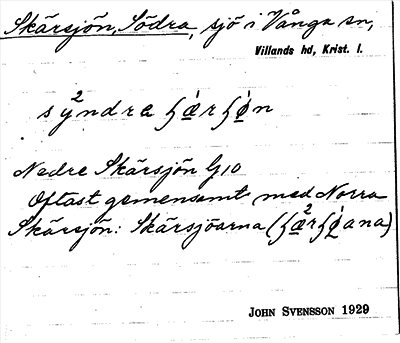 Skärsjön, Södra, sjö i Vånga sn,
Villands hd, Krist. l.
sy²ndra ʃæ̀rʃø̀n
Nedre Skärsjön G10
Oftast gemensamt med Norra
Skärsjön: Skärsjöarna (ʃæ²rʃø̀ana)
JOHN SVENSSON 1929